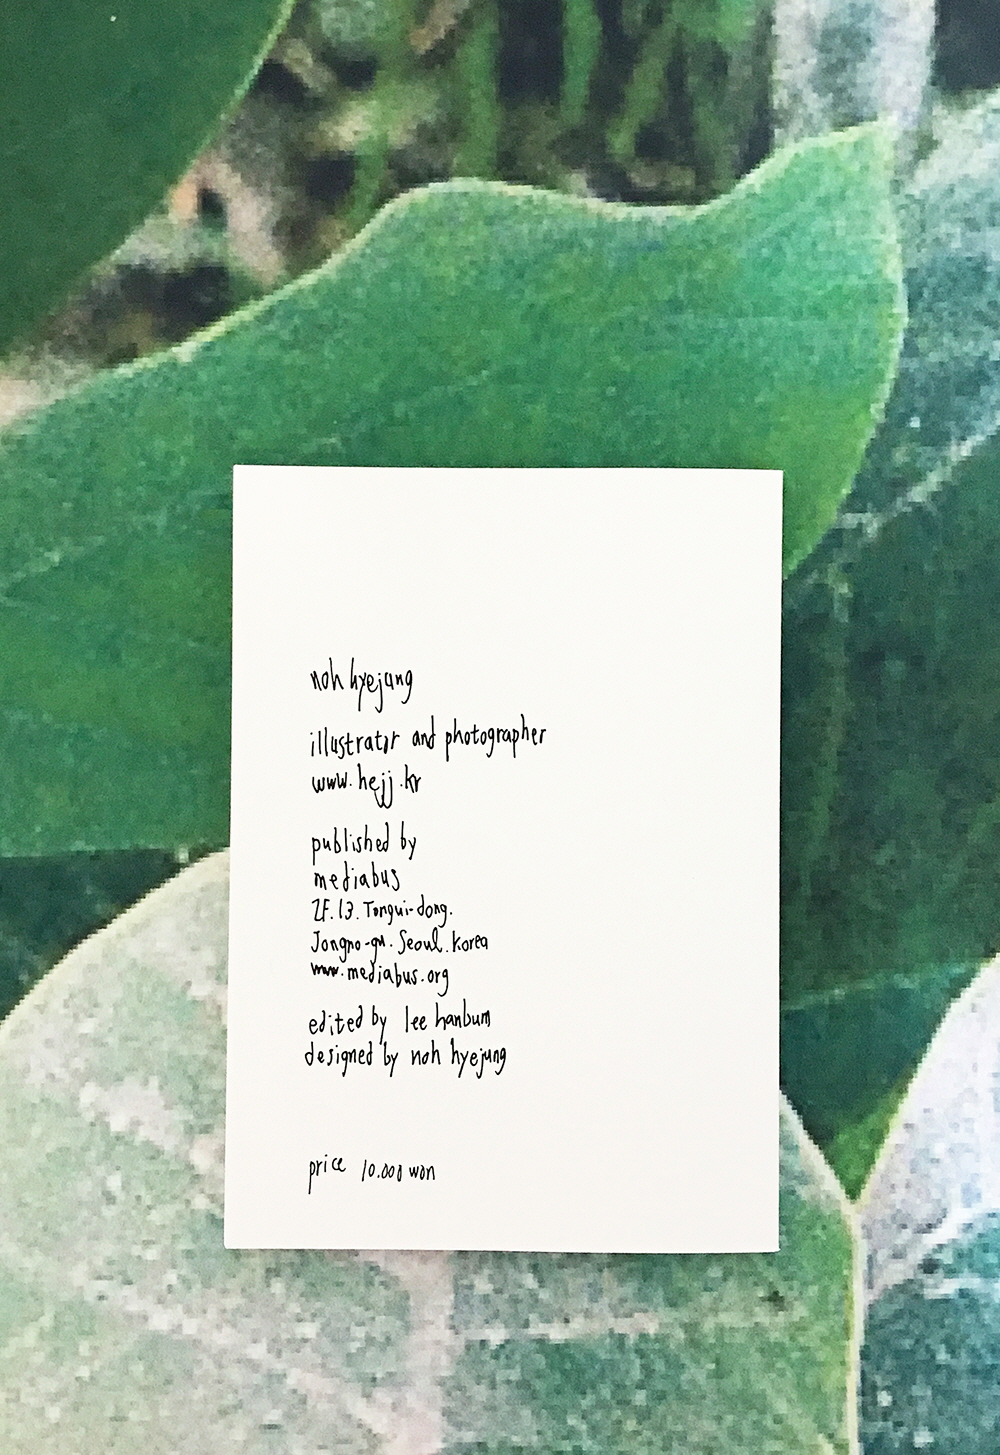 noh hyejung
illustrator and photographer
www.hejj.kr
published by
mediabus
2F.13.Tongui-dong.
Jongno-gu.Seoul.Korea
www.mediabus.org
edited by lee hanbum
designed by noh hyejung
price 10.000 won